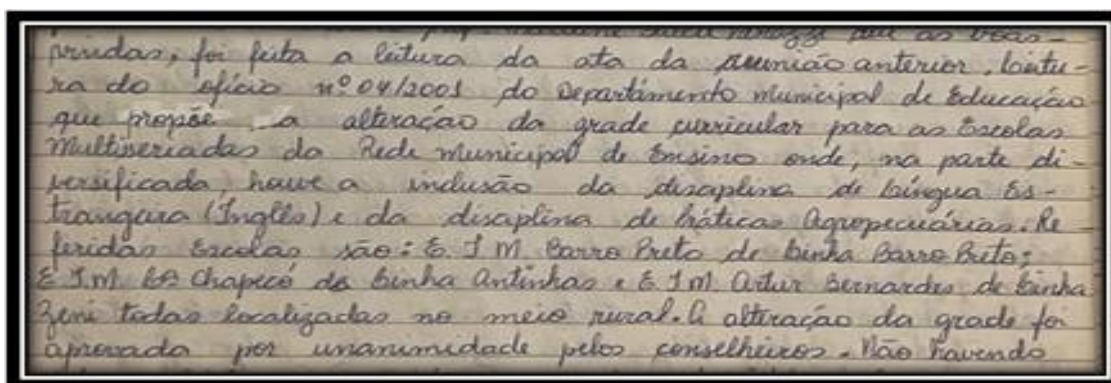 deu as boas-
vindas, foi feita a leitura da ata da reunião anterior, leitu-
ra do ofício nº 04/2001 do Departamento Municipal de Educação
que propõe a alteração da grade curricular para as Escolas
Multiseriadas da Rede Municipal de Ensino onde, na parte di-
versificada, houve a inclusão da disciplina de Língua Es-
trangeira (Inglês) e da disciplina de Práticas Agropecuárias. Re
feridas Escolas são: E I M Barro Preto de Linha Barro Preto;
E I M Chapecó de Linha Antinhas e E I M Artur Bernardes de Linha
Zeni todas localizadas no meio rural. A alteração da grade foi
aprovada por unanimidade pelos conselheiros. Não havendo